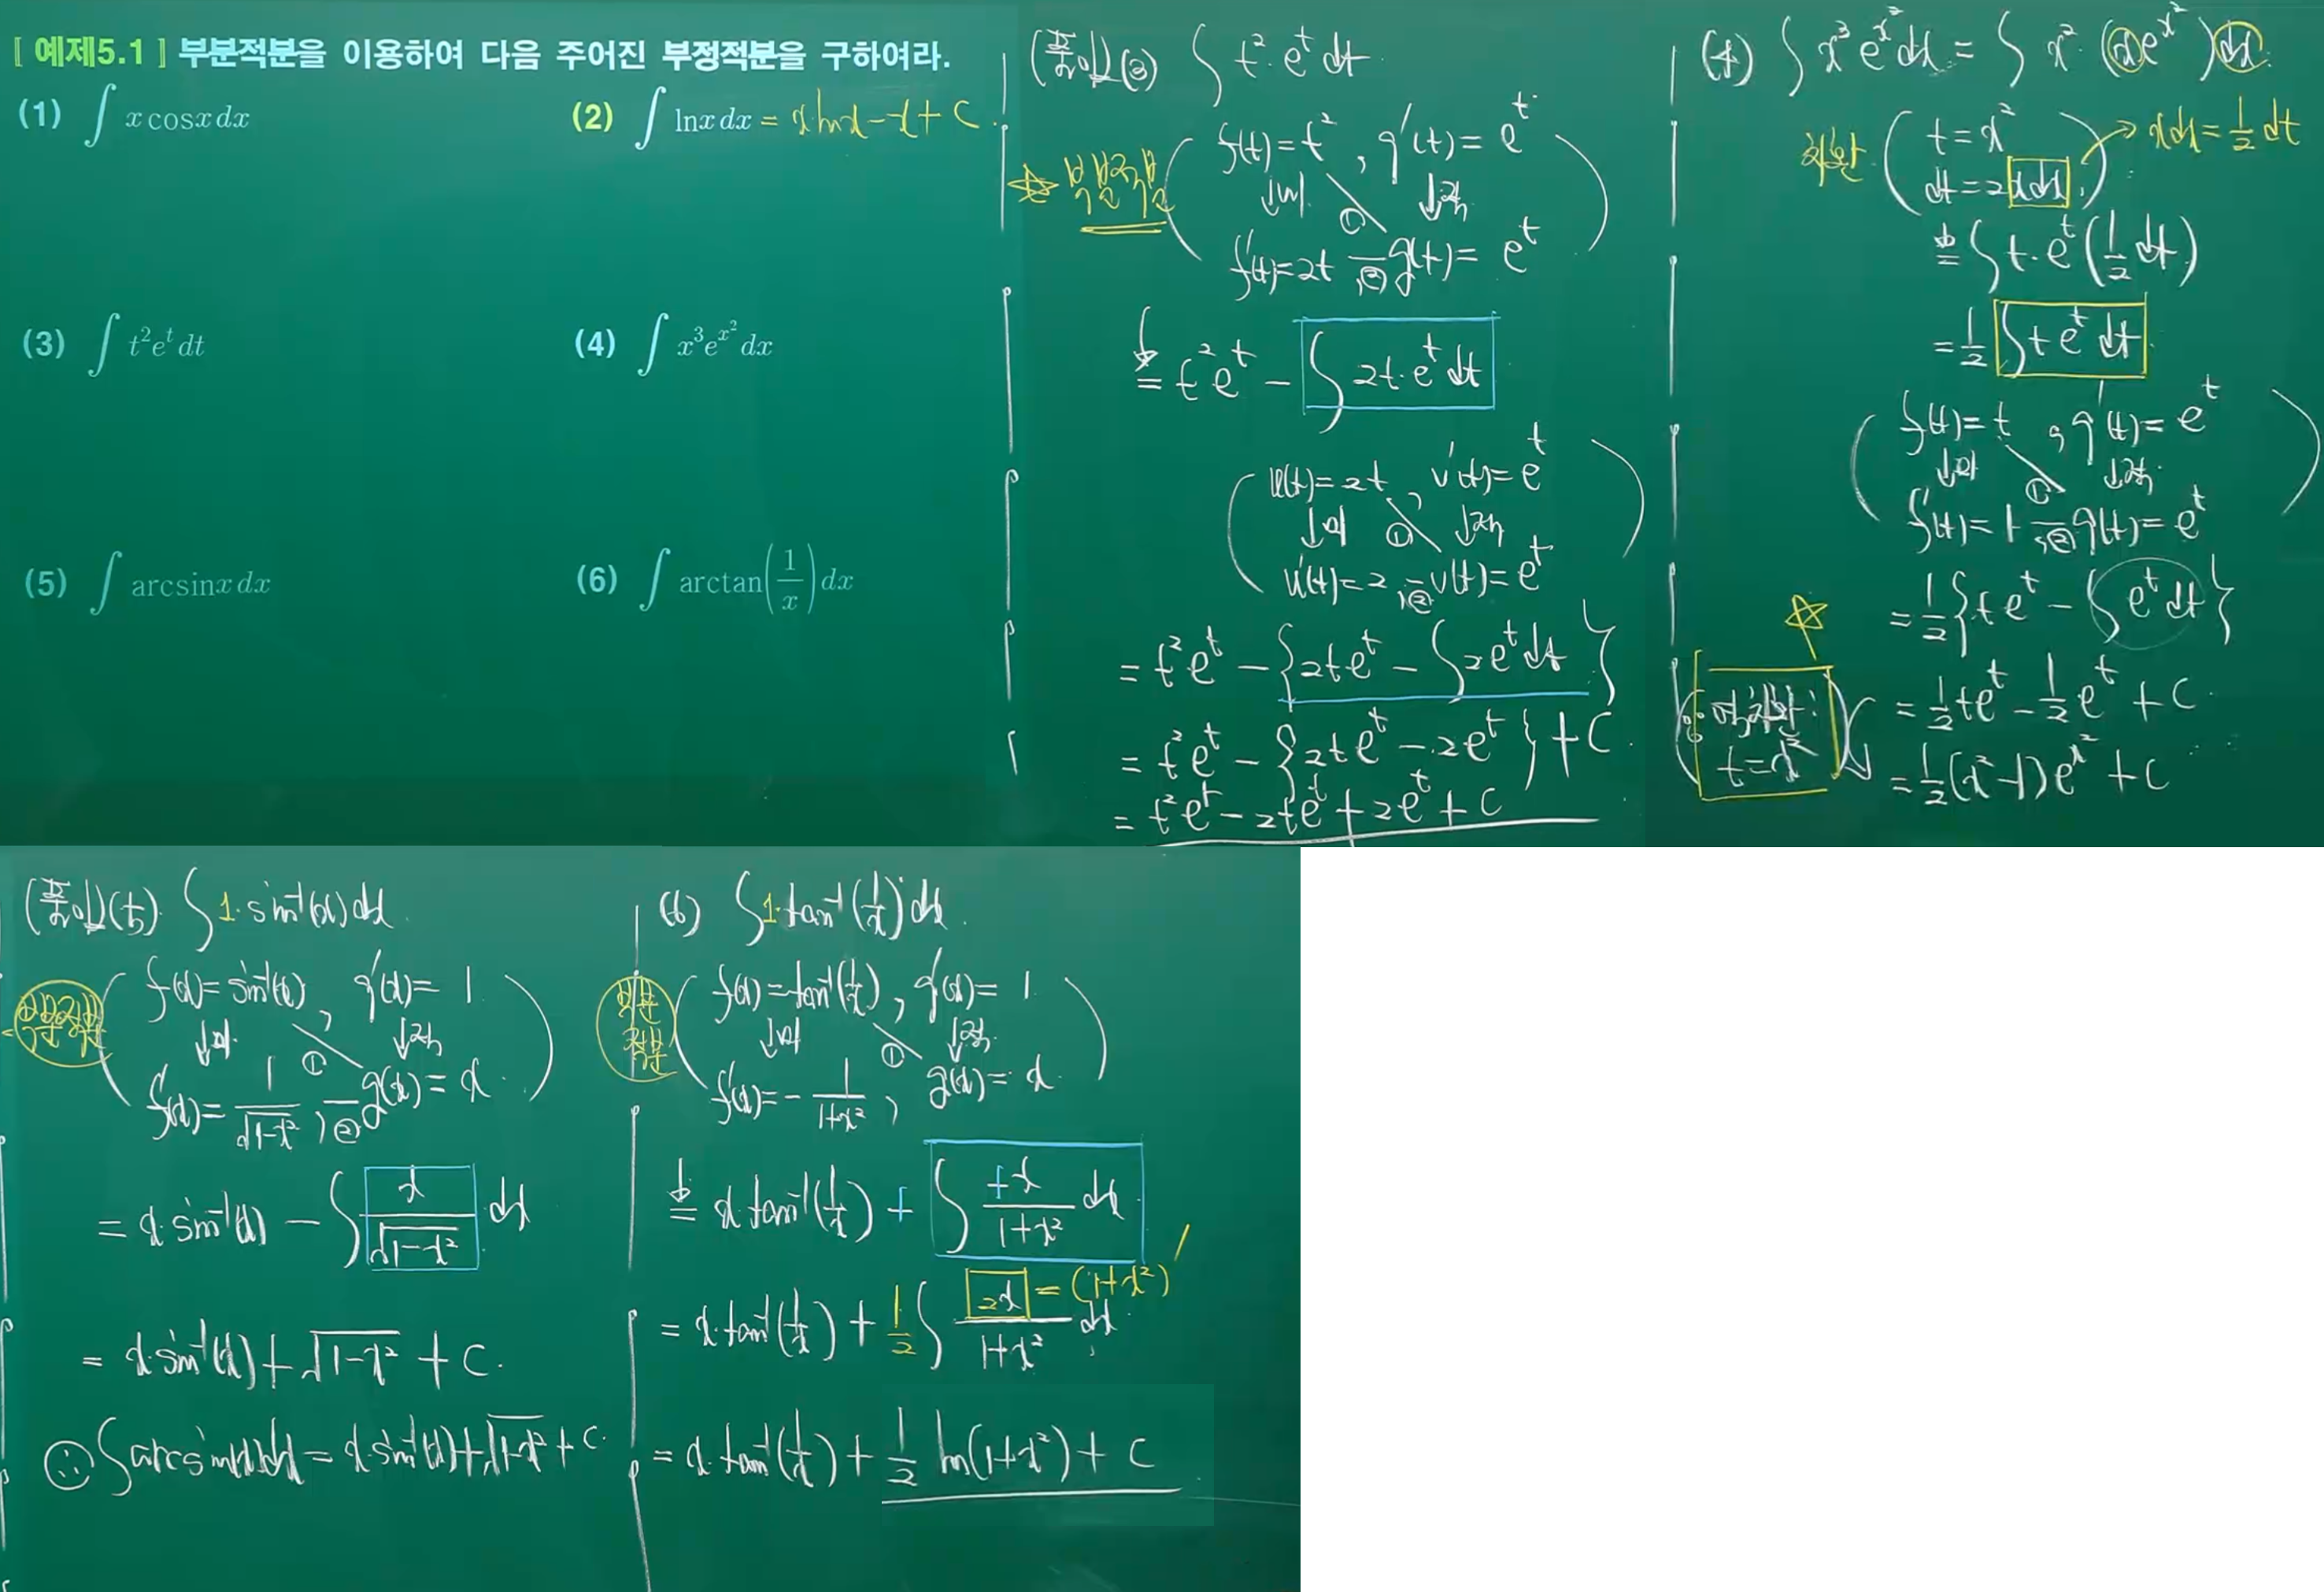 [ 예제5.1 ] 부분적분을 이용하여 다음 주어진 부정적분을 구하여라.
(1) ∫ x cosx dx
(2) ∫ lnx dx = x·lnx - x + C.
(3) ∫ t²eᵗ dt
(4) ∫ x³e^{x²} dx
(5) ∫ arcsinx dx
(6) ∫ arctan(1/x) dx
(풀이) (3) ∫ t²·eᵗ dt
☆ 부분적분
f(t)=t², g'(t)=eᵗ
↓미 ① ↓적
f'(t)=2t, ② g(t)=eᵗ
= t²eᵗ - ∫ 2t·eᵗ dt
u(t)=2t, v'(t)=eᵗ
↓미 ① ↓적
u'(t)=2, ② v(t)=eᵗ
= t²eᵗ - {2teᵗ - ∫2eᵗ dt}
= t²eᵗ - {2teᵗ - 2eᵗ} + C.
= t²eᵗ - 2teᵗ + 2eᵗ + C
(4) ∫ x³e^{x²} dx = ∫ x²·(xe^{x²}) dx.
치환 ( t=x²
dt=2xdx. ) → xdx = 1/2 dt
= ∫ t·eᵗ (1/2 dt)
= 1/2 ∫ t eᵗ dt
f(t)=t, g'(t)=eᵗ
↓미 ① ↓적
f'(t)=1, ② g(t)=eᵗ
= 1/2 {teᵗ - ∫ eᵗ dt}
= 1/2 teᵗ - 1/2 eᵗ + C.
☆
역치환:
t=x²
= 1/2 (x²-1)e^{x²} + C
(풀이) (5) ∫ 1·sin⁻¹(x) dx
부분적분
f(x)=sin⁻¹(x), g'(x)=1
↓미 ① ↓적
f'(x)=1/√(1-x²), ② g(x)=x.
= x·sin⁻¹(x) - ∫ x/√(1-x²) dx
= x·sin⁻¹(x) + √(1-x²) + C.
∫ arcsin(x)dx = x·sin⁻¹(x) + √(1-x²) + C.
(6) ∫ 1·tan⁻¹(1/x) dx.
부분
적분
f(x)=tan⁻¹(1/x), g'(x)=1
↓미 ① ↓적
f'(x)=-1/(1+x²), g(x)=x
= x·tan⁻¹(1/x) + ∫ +x/(1+x²) dx
= x·tan⁻¹(1/x) + 1/2 ∫ 2x/(1+x²) dx
2x = (1+x²)'
= x·tan⁻¹(1/x) + 1/2 ln(1+x²) + C